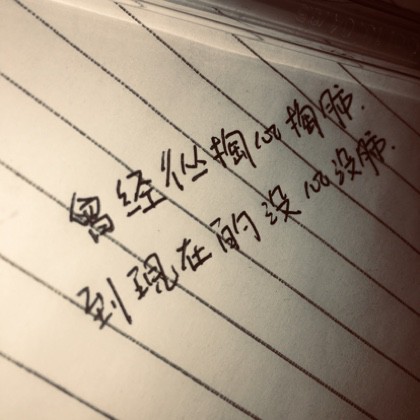 曾经从掏心掏肺.
到现在的没心没肺.